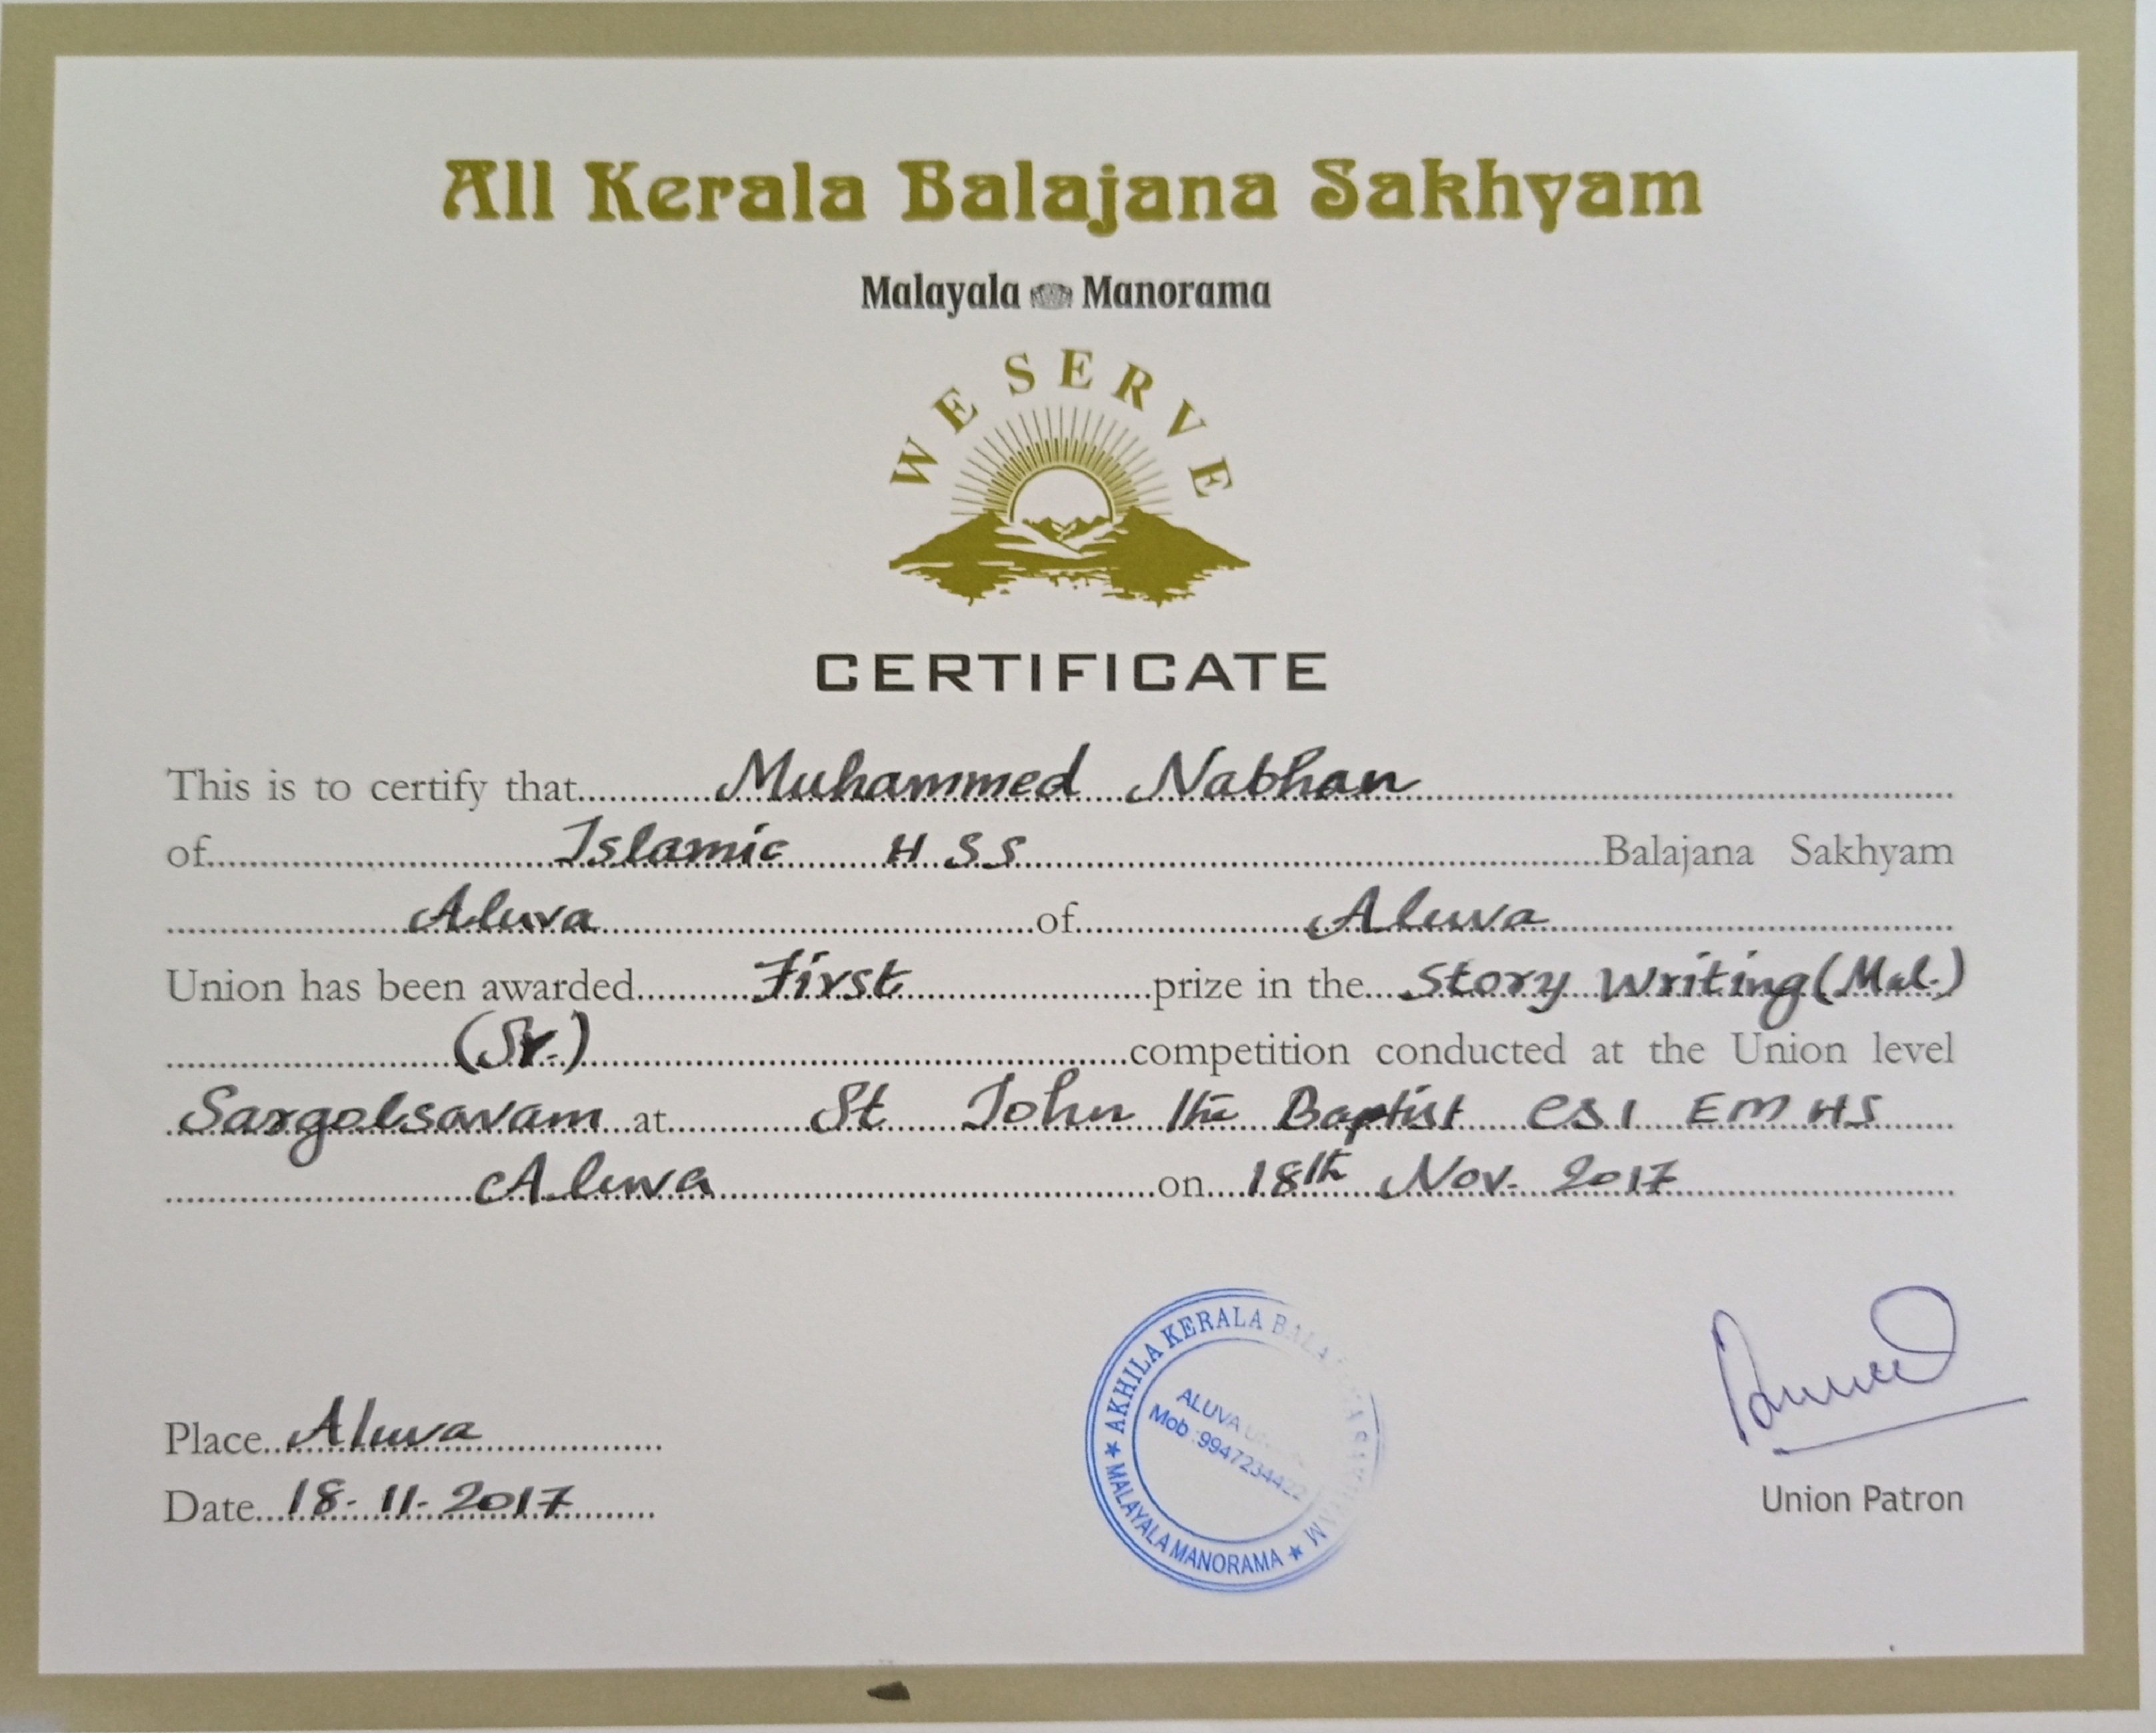 All Kerala Balajana Sakhyam
Malayala Manorama
WE SERVE
CERTIFICATE
This is to certify that Muhammed Nabhan
of Islamic H S S Balajana Sakhyam
Aluva of Aluva
Union has been awarded First prize in the Story Writing (Mal.)
(Sr.) competition conducted at the Union level
Sargolsavam at St John the Baptist CSI EM HS
Aluva on 18th Nov. 2017
AKHILA KERALA
ALUVA
Mob :9947234422
★ MALAYALA MANORAMA ★
Place Aluva
Date 18-11-2017
Union Patron